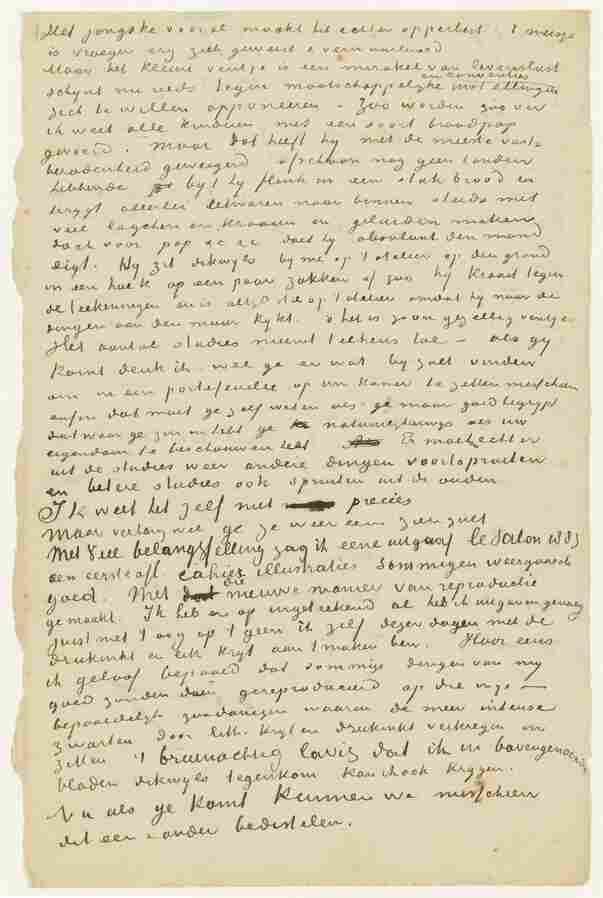 Het jongske vooral maakt het echter opperbest. t meisje
is vroeger erg ziek geweest & verwaarloosd.
Maar het kleine ventje is een mirakel van levenslust
schijnt nu reeds tegen maatschappelijke instellingen
en conventies
zich te willen opponeeren. Zoo worden zoo ver
ik weet alle kinderen met een soort broodpap
gevoed. Maar dat heeft hij met de meeste vast
beradenheid geweigerd ofschoon nog geen tanden
hebbende bijt hij flink in een stuk brood en
krijgt allerlei eetwaren naar binnen steeds met
veel lagchen en kraaien en geluiden maken
doch voor pap &c &c doet hij absoluut den mond
digt. Hij zit dikwijls bij me op 't atelier op den grond
in een hoek op een paar zakken of zoo hij kraait tegen
de teekeningen en is altijd stil op 't atelier omdat hij naar de
dingen aan den muur kijkt. o het is zoo'n gezellig ventje.
Het aantal studies neemt telkens toe – als gij
komt denk ik wel ge er wat bij zult vinden
om in een portefeuille op uw kamer te zetten misschien
enfin dat moet ge zelf weten als ge maar goed begrijpt
dat waar ge zin in hebt ge natuurlijkerwijs als uw
eigendom te beschouwen hebt Er moet echter
uit de studies weer andere dingen voortspruiten
en betere studies ook spruiten uit de ouden
Ik weet het zelf niet precies
maar verlang wel ge ze weer eens zien zult
Met veel belangstelling zag ik eene uitgaaf le Salon 1883
een eerste afl. cahier illustraties sommigen weergaasch
goed. Met die nieuwe manier van reproductie
gemaakt. Ik heb er op ingeteekend al heb ik uitgaven genoeg
juist met 't oog op 't geen ik zelf dezer dagen met de
drukinkt en lith. krijt aan 't maken ben. Hoor eens
ik geloof bepaald dat sommige dingen van mij
goed zouden doen gereproduceerd op die wijs –
bepaaldelijk zoodanigen waarin de meer intense
zwarten door lith. krijt en drukinkt verkregen en
zitten 't bruinachtig lavis dat ik in bovengenoemde
bladen dikwijls tegenkom kan ik ook krijgen.
Nu als ge komt kunnen we misschien
dit een & ander bedisselen.